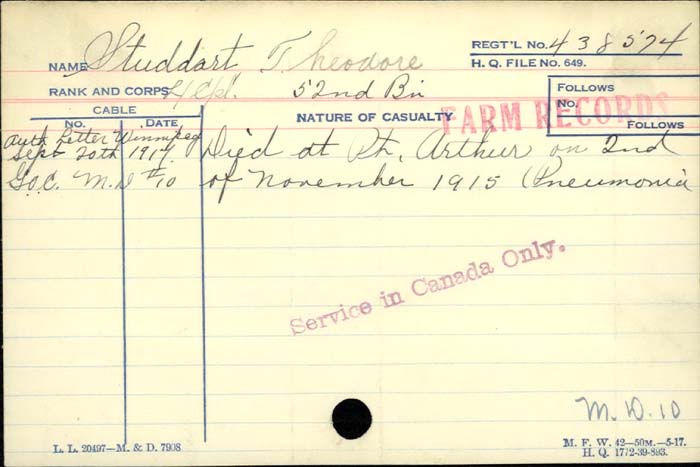 NAME Studdart Theodore REGT'L No. 438574
H. Q. FILE No. 649.
RANK AND CORPS L/Cpl. 52nd Bn
FOLLOWS
No.
FOLLOWS
CABLE
No. DATE
NATURE OF CASUALTY
FARM RECORDS
Auth Letter Winnipeg
Sept 20th 1917. Died at Pt. Arthur on 2nd
G.O.C. M.D #10 of November 1915 (Pneumonia
Service in Canada Only.
M.D.10
L. L. 20497—M. & D. 7908
M. F. W. 42—50M.—5-17.
H. Q. 1772-39-893.